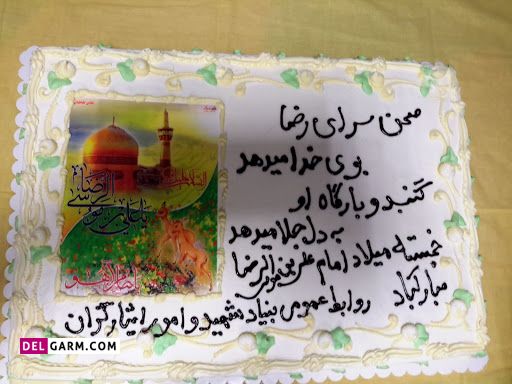 صحن سرای رضا
بوی خدا میدهد
گنبد و بارگاه او
به دل جلا میدهد
خجسته میلاد امام علی بن موسی الرضا
مبارکباد
روابط عمومی بنیاد شهید و امور ایثارگران
یا علی بن موسی الرضا
DELGARM.COM